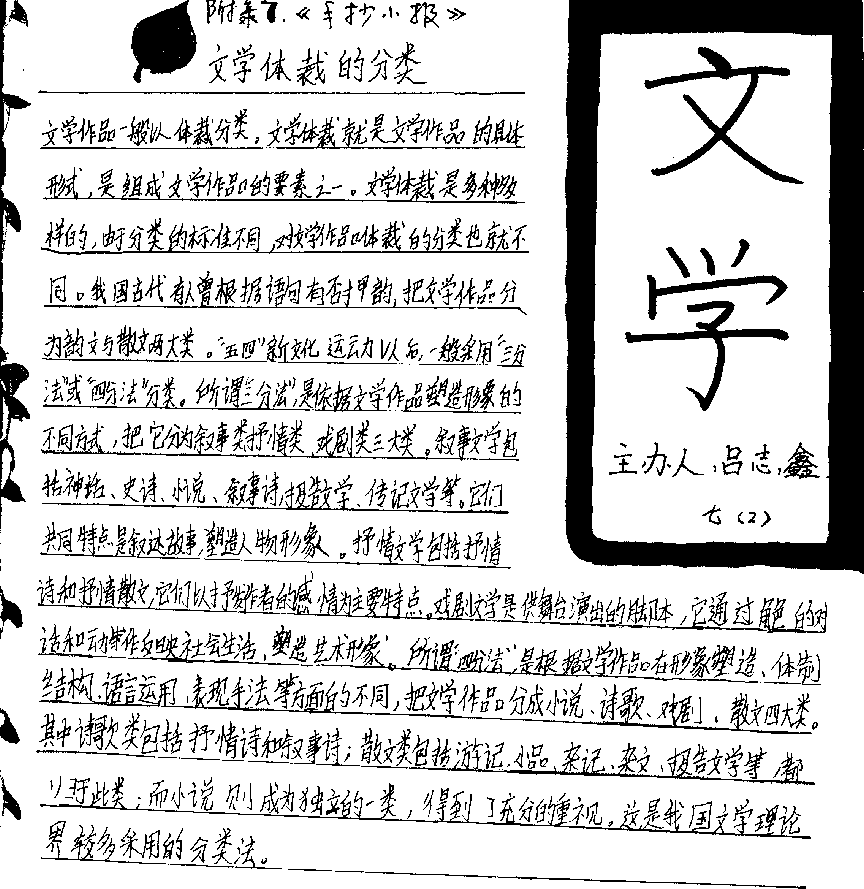 附录7.《手抄小报》
文学体裁的分类
文学作品一般以体裁分类。文学体裁就是文学作品的具体
形式,是组成文学作品的要素之一。文学体裁是多种多
样的,由于分类的标准不同,对文学作品体裁的分类也就不
同。我国古代有人曾根据语句有否押韵,把文学作品分
为韵文与散文两大类。“五四”新文化运动以后,一般采用“三分
法”或“四分法”分类。所谓“三分法”,是依据文学作品塑造形象的
不同方式,把它分为叙事类抒情类、戏剧类三大类。叙事文学包
括神话、史诗、小说、叙事诗,报告文学、传记文学等。它们
共同特点是叙述故事,塑造人物形象。抒情文学包括抒情
诗和抒情散文,它们以抒发作者的感情为主要特点。戏剧文学是供舞台演出的脚本,它通过角色的对
话和动作反映社会生活、塑造艺术形象。所谓“四分法”,是根据文学作品在形象塑造、体制
结构、语言运用、表现手法等方面的不同,把文学作品分成小说、诗歌、戏剧、散文四大类。
其中诗歌类包括抒情诗和叙事诗;散文类包括游记、小品、杂记、杂文、报告文学等,都
归于此类;而小说则成为独立的一类,得到了充分的重视。这是我国文学理论
界较多采用的分类法。
文
学
主办人:吕志鑫
七(2)